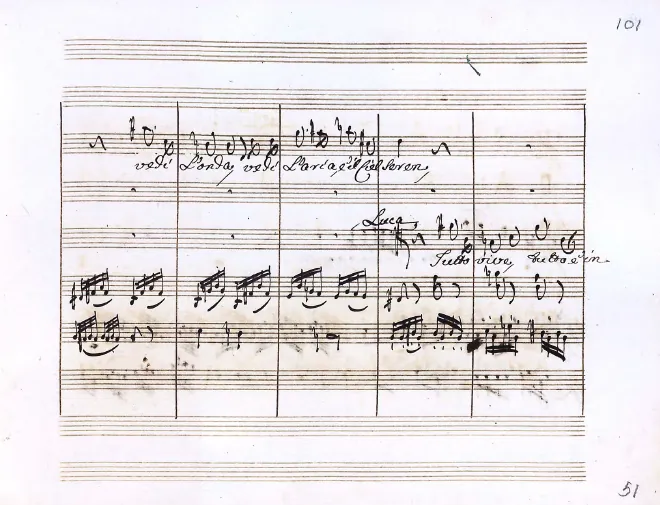 101
vedi L'onda, vedi L'aria, e il Ciel Seren,
Luca
Tutto vive, tutto è in
51